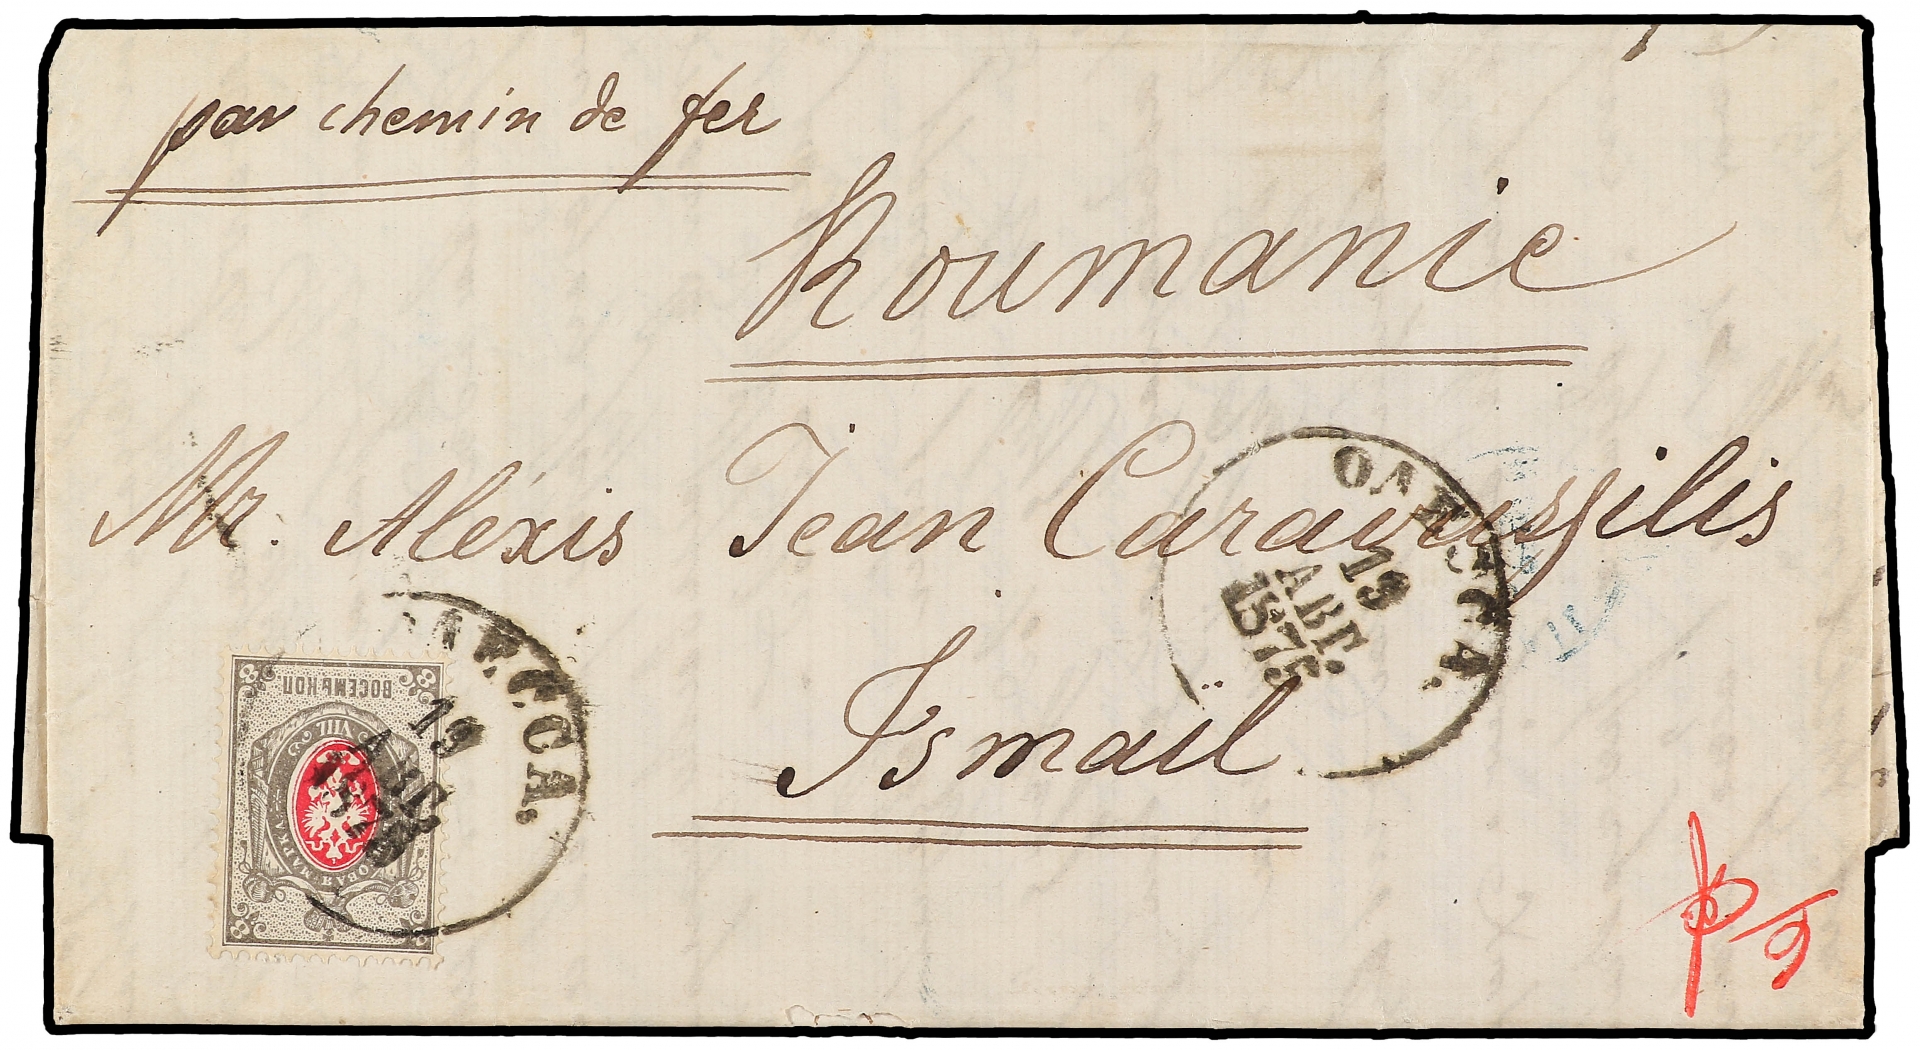 par chemin de fer
Roumanie
Mr. Aléxis Jean Caravassilis
Ismaïl
ОДЕССА.
19
АВГ.
1875
ОДЕССА.
19
АВГ.
ВОСЕМЬ КОП
8 8
8 8